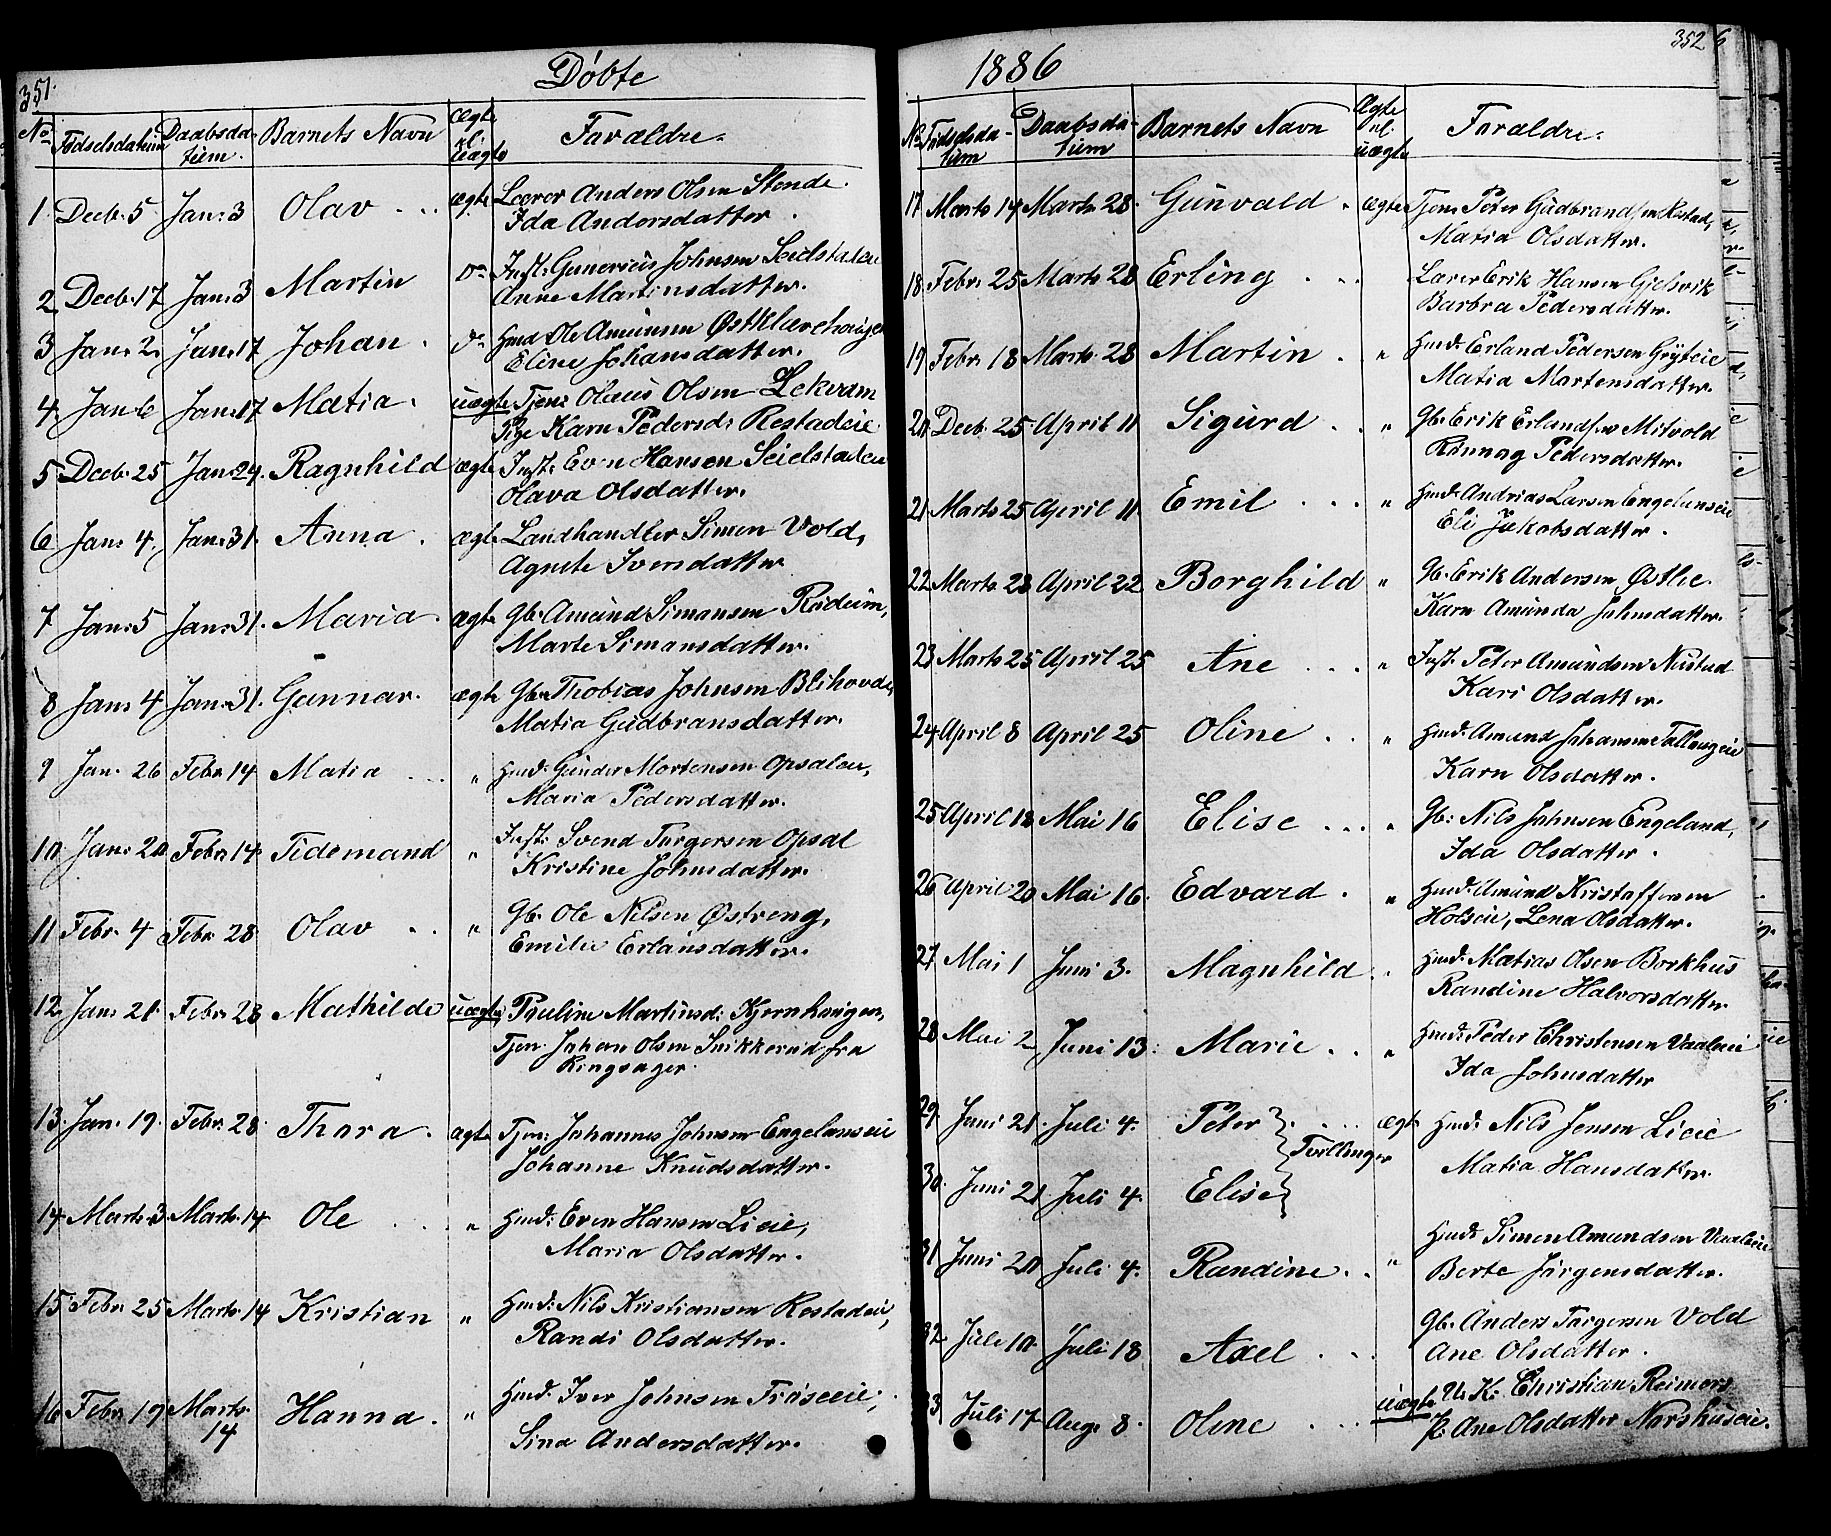 351.
Döbte
No
Födselsdatum
Daabsdatum.
Barnets Navn
Ægte el. uægte
Foræladre.
1. Decb. 5 Jan: 3 Olav . . . ægte Lærer Anders Olsen Stende.
Ida Andersdatter.
2 Decb. 17 Jan: 3 Martin Do Inst: Gunerius Johnsen Seielstaden
Anne Martinsdatter.
3 Jan: 2. Jan: 17 Johan. Do Hmd. Ole Amünsen Østklævhaugen
Eline Johansdatter.
4. Jan: 6 Jan: 17 Matia. uægte Tjen: Olaus Olsen Lekvam
Pige Karn Pedersd: Restadeie
5 Decb. 25 Jan: 24. Ragnhild ægte Inst: Even Hansen Seielstaden
Olava Olsdatter.
6 Jan: 4. Jan: 31. Anna. ægte Landhandler Simen Vold,
Agnete Iversdatter
7 Jan: 5 Jan: 31. Maria. ægte Gb. Amünd Simensen Rødeim,
Marte Simensdatter.
8 Jan: 4 Jan: 31. Gunnar. ægte Gb. Thobias Johnsen Blihovde,
Matia Gudbransdatter.
9 Jan. 26 Febr. 14 Matia . . . " Hmd: Günder Mortensen Opsalen,
Maria Pedersdatter.
10 Jan: 20 Febr. 14. Tidemand " Inst: Svend Torgersen Opsal
Kristine Johnsdatter.
11 Febr. 4 Febr. 28 Olav . . " Gb. Ole Nilsen Østreng,
Emilie Erlansdatter.
12 Jan: 21. Febr. 28 Mathilde uægte Pauline Martinsd: Kjernhaugen,
Tjen. Johan Olsen Snikkerud fra
Ringsager.
13. Jan. 19. Febr. 28. Thora. ægte Tjen: Johannes Johnsen Engelanseie
Johanne Knudsdatter.
14 Marts 3 Marts 14 Ole . . . " Hmd: Even Hansen Lieie,
Maria Olsdatter.
15 Febr. 25 Marts 14 Kristian " Hmd: Nils Kristiansen Restadeie,
Randi Olsdatter.
16 Febr. 19 Marts 14 Hanna. " Hmd. Iver Johnsen Fröseeie,
Sina Andersdatter.
1886
352
No
Födselsdatum
Daabsdatum
Barnets Navn
Ægte el. uægte
Foræladre.
17 Marts 14 Marts 28. Gunvald . ægte Tjen: Peter Gudbrandsen Restad,
Matia Olsdatter.
18 Febr. 25 Marts 28 Erling . . . Lærer Erik Hansen Gjelsvik
Barbra Pedersdatter.
19 Febr. 18 Marts. 28 Martin . . " Hmd. Erland Pedersen Gryteie
Matia Martensdatter.
20 Decb. 25 April 11 Sigurd . . " Gb. Erik Erlandsen Mitvold
Rönnag Pedersdatter.
21. Marts 25 April 11 Emil . . . " Hmd. Andrias Larsen Engelanseie
Eli Jakobsdatter.
22 Marts 28 April 22 Borghild " Gb. Erik Andersen Østlie.
Karn Amünda Johnsdatter.
23 Marts 25 April 25 Ane . . . " Inst: Peter Amündsen Nustad
Kari Olsdatter.
24 April 8 April 25 Oline . . " Hmd. Amund Johansen Talbergeie
Karn Olsdatter.
25 April 18 Mai 16 Elise . . . " Gb: Nils Johnsen Engeland,
Ida Olsdatter.
26 April 20 Mai 16. Edvard . " Hmd. Amünd Kristoffersen
Holseie, Lena Olsdatter.
27 Mai 1 Juni 3. Magnhild . " Hmd. Matias Olsen Borkhus
Randine Halvorsdatter
28 Mai 2 Juni 13. Marie . . " Hmd. Peder Christensen Vaaleeie
Ida Johnsdatter
29. Juni 21. Juli 4. Peter . . . . ægte Hmd. Nils Jensen Lieie
Tvillinger
30. Juni 21 Juli 4. Elise
Matia Hansdatter.
31 Juni 20 Juli 4. Randine . . " Hmd. Simen Amundsen Vaaleeie
Berte Jörgensdatter.
32 Juli 10 Juli 18 Axel . . . Gb. Anders Torgersen Vold
Ane Olsdatter.
33 Juli 17 Aug. 8. Oline . . . uægte U. K: Christian Reimers
P. Ane Olsdatter Norshuseie.